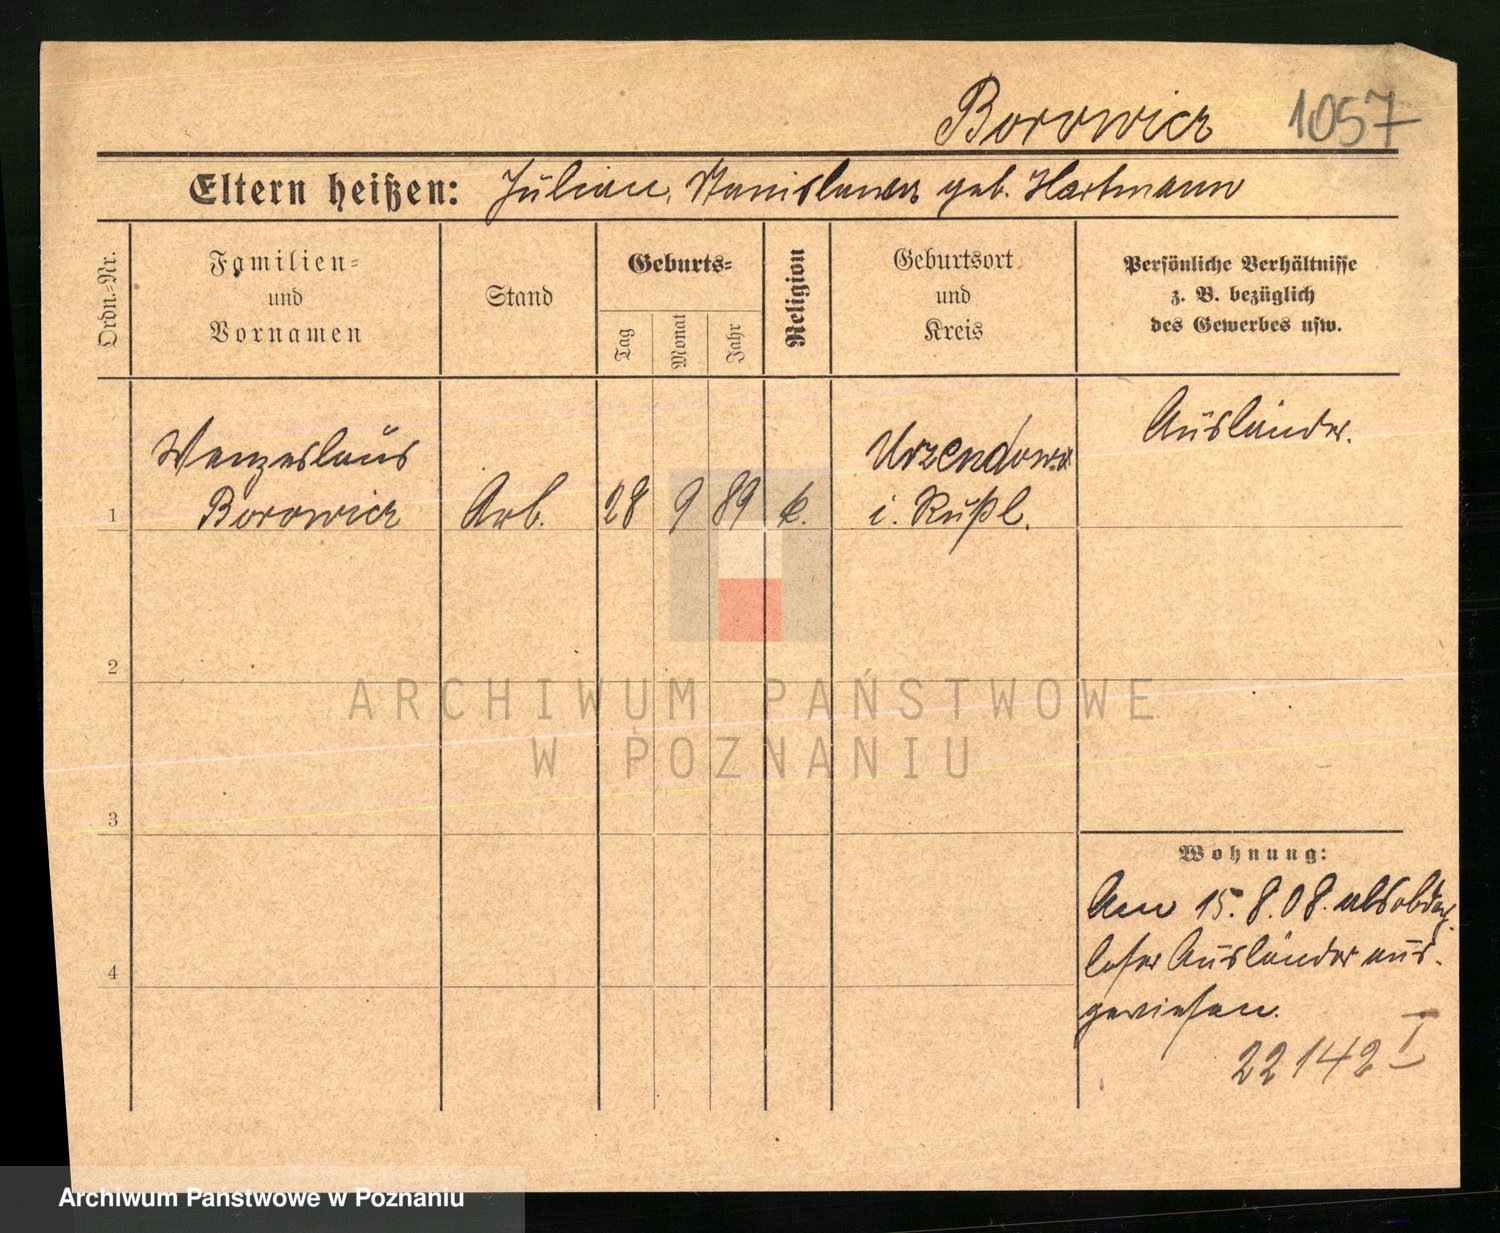 Borowicz 1057
Eltern heißen: Julian, Stanislawa geb. Hartmann
Ordn.-Nr.
Familien-
und
Vornamen
Stand
Geburts-
Tag
Monat
Jahr
Religion
Geburtsort
und
Kreis
Persönliche Verhältnisse
z. B. bezüglich
des Gewerbes usw.
Wenzeslaus
Borowicz
Urzendowa
Ausländer.
1 Arb. 28 9 89 k. i. Rußl.
2
ARCHIWUM PAŃSTWOWE
W POZNANIU
3
Wohnung:
Am 15.8.08. als obdach-
loser Ausländer aus-
4
gewiesen.
22142 I
Archiwum Państwowe w Poznaniu